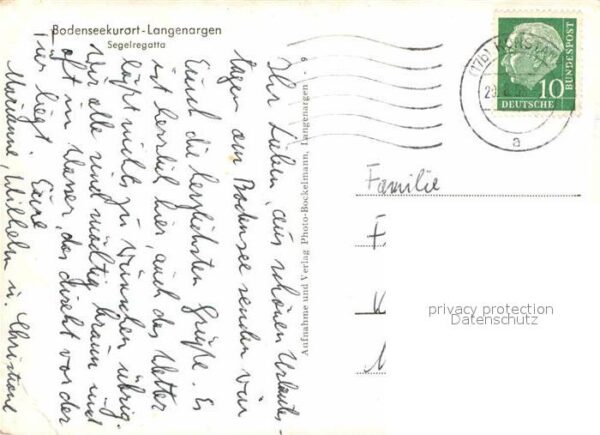 Bodenseekurort-Langenargen
Segelregatta
Ihr Lieben, aus schönen Urlaubs-
tagen am Bodensee senden wir
Euch die herzlichsten Grüße. Es
ist herrlich hier, auch das Wetter
läßt nichts zu wünschen übrig.
Wir alle sind mächtig braun und
oft im Wasser, das direkt vor der
Tür liegt. Eure
Marianne, Wilhelm u. Christiane
Aufnahme und Verlag Photo-Bockelmann, Langenargen • 9
(17b) KONSTANZ
a
10
DEUTSCHE
BUNDESPOST
Familie
F
K
privacy protection
Datenschutz